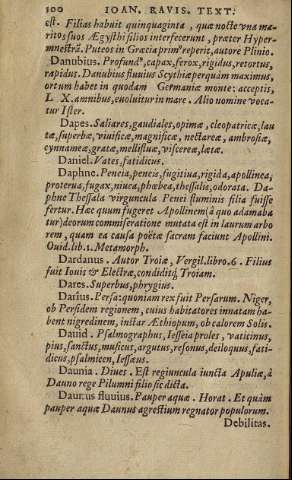 100 IOAN. RAVIS. TEXT:
est. Filias habuit quinquaginta, quæ nocte vna ma-
ritos suos Ægysthi filios interfecerunt, præter Hyper-
mnestrā. Puteos in Græcia prim⁹ reperit, autore Plinio.
Danubius. Profund⁹, capax, ferox, rigidus, retortus,
rapidus. Danubius fluuius Scythiæ perquàm maximus,
ortum habet in quodam Germaniæ monte: acceptis,
L X. amnibus, euoluitur in mare. Alio nomine voca-
tur Ister.
Dapes. Saliares, gaudiales, opimæ, cleopatricæ, lau
tæ, superbæ, viuificæ, magnificæ, nectareæ, ambrosiæ,
cynnameæ, gratæ, mellifluæ, viscereæ, lætæ.
Daniel. Vates, fatidicus.
Daphne. Peneia, peneis, fugitiua, rigida, apollinea,
proterua, fugax, niuea, phœbea, thessalis, odorata. Da-
phne Thessala virguncula Penei fluminis filia fuisse
fertur. Hæc quum fugeret Apollinem (à quo adamaba
tur) deorum commiseratione mutata est in laurum arbo
rem, quam ea causa poëtæ sacram faciunt Apollini.
Ouid. lib. 1. Metamorph.
Dardanus. Autor Troiæ, Vergil. libro. 6. Filius
fuit Iouis & Electræ, conditidq́; Troiam.
Dares. Superbus, phrygius.
Darius. Persa: quoniam rex fuit Persarum. Niger,
ob Persidem regionem, cuius habitatores innatam ha-
bent nigredinem, instar Æthiopum, ob calorem Solis.
Dauid. Psalmographus, Iesseia proles, vaticinus,
pius, sanctus, musicus, argutus, resonus, deiloquus, fati-
dicus, psalmicen, Iessæus.
Daunia. Diues. Est regiuncula iuncta Apuliæ, à
Dauno rege Pilumni filio sic dicta.
Daunus fluuius. Pauper aquæ. Horat. Et quàm
pauper aquæ Daunus agrestium regnator populorum.
Debilitas.